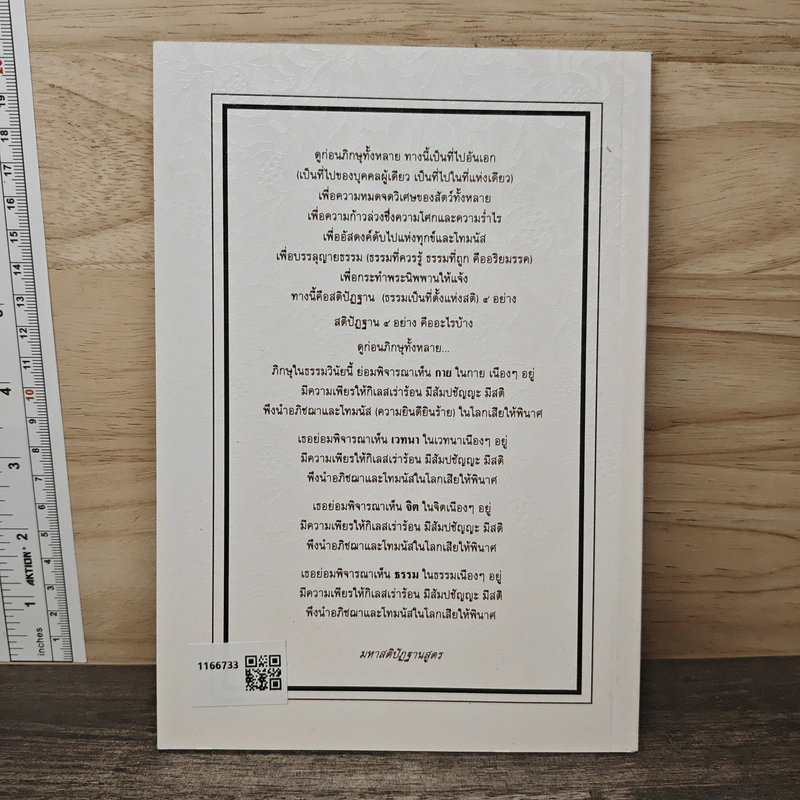 ดูก่อนภิกษุทั้งหลาย ทางนี้เป็นที่ไปอันเอก
(เป็นที่ไปของบุคคลผู้เดียว เป็นที่ไปในที่แห่งเดียว)
เพื่อความหมดจดวิเศษของสัตว์ทั้งหลาย
เพื่อความก้าวล่วงซึ่งความโศกและความร่ำไร
เพื่ออัสดงค์ดับไปแห่งทุกข์และโทมนัส
เพื่อบรรลุญายธรรม (ธรรมที่ควรรู้ ธรรมที่ถูก คืออริยมรรค)
เพื่อกระทำพระนิพพานให้แจ้ง
ทางนี้คือสติปัฏฐาน (ธรรมเป็นที่ตั้งแห่งสติ) ๔ อย่าง
สติปัฏฐาน ๔ อย่าง คืออะไรบ้าง
ดูก่อนภิกษุทั้งหลาย...
ภิกษุในธรรมวินัยนี้ ย่อมพิจารณาเห็น กาย ในกาย เนืองๆ อยู่
มีความเพียรให้กิเลสเร่าร้อน มีสัมปชัญญะ มีสติ
พึงนำอภิชฌาและโทมนัส (ความยินดียินร้าย) ในโลกเสียให้พินาศ
เธอย่อมพิจารณาเห็น เวทนา ในเวทนาเนืองๆ อยู่
มีความเพียรให้กิเลสเร่าร้อน มีสัมปชัญญะ มีสติ
พึงนำอภิชฌาและโทมนัสในโลกเสียให้พินาศ
เธอย่อมพิจารณาเห็น จิต ในจิตเนืองๆ อยู่
มีความเพียรให้กิเลสเร่าร้อน มีสัมปชัญญะ มีสติ
พึงนำอภิชฌาและโทมนัสในโลกเสียให้พินาศ
เธอย่อมพิจารณาเห็น ธรรม ในธรรมเนืองๆ อยู่
มีความเพียรให้กิเลสเร่าร้อน มีสัมปชัญญะ มีสติ
พึงนำอภิชฌาและโทมนัสในโลกเสียให้พินาศ
มหาสติปัฏฐานสูตร
1166733
19
18
17
16
15
14
13
12
11
10
9
8
7
6
5
4
3
2
1
4
3
2
1
AKTION
inches
cm